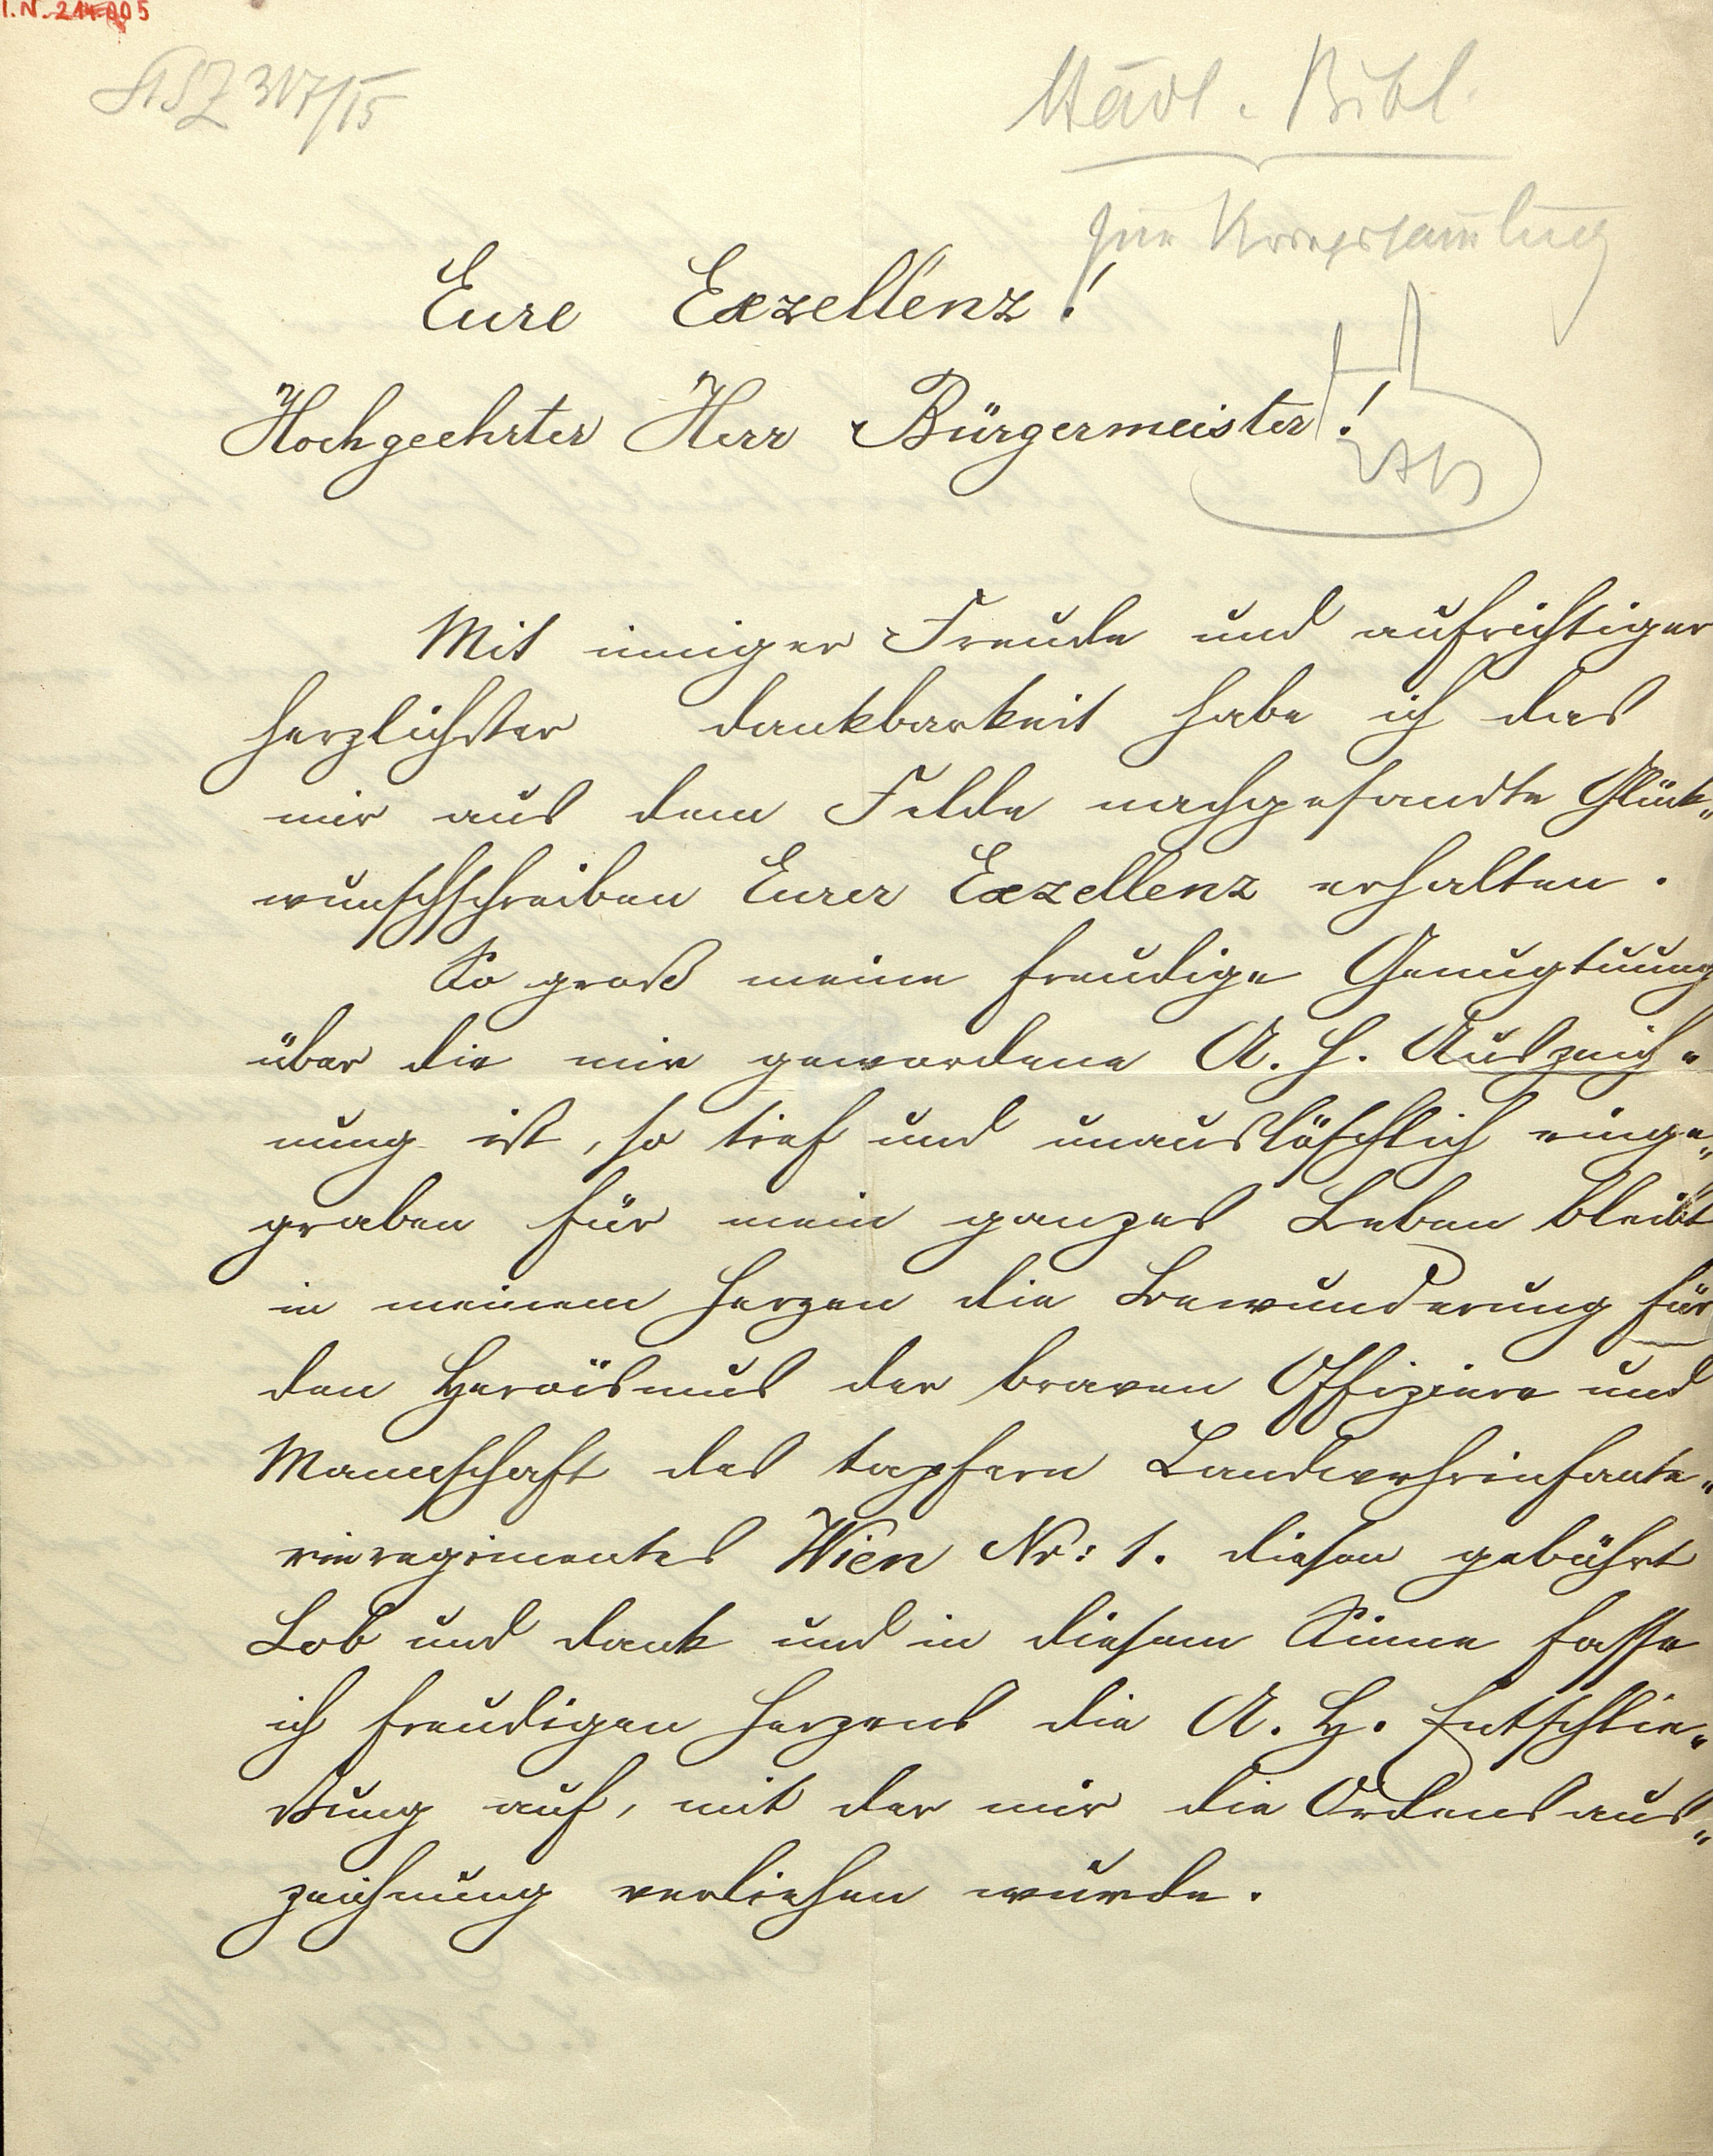 I.N. 214005
Städt. Bibl.
317/15
zur Kriegssammlung
Eure Exzellenz!
Hochgeehrter Herr Bürgermeister!
Mit inniger Freude und aufrichtiger
herzlichster Dankbarkeit habe ich das
mir aus dem Felde nachgesandte Glück„
wunschschreiben Eurer Exzellenz erhalten.
So groß meine freudige Genugtuung
über die mir gewordene A. H. Auszeich„
nung ist, so tief und unauslöschlich einge„
graben für mein ganzes Leben bleibt
in meinem Herzen die Bewunderung für
den Heroïsmus der braven Offiziere und
Mannschaft des tapfern Landwehrinfante„
rieregimentes Wien Nr: 1. Diesen gebührt
Lob und Dank und in diesem Sinne fasse
ich freudigen Herzens die A. H. Entschlie„
ßung auf, mit der mir die Ordensaus„
zeichnung verliehen wurde.